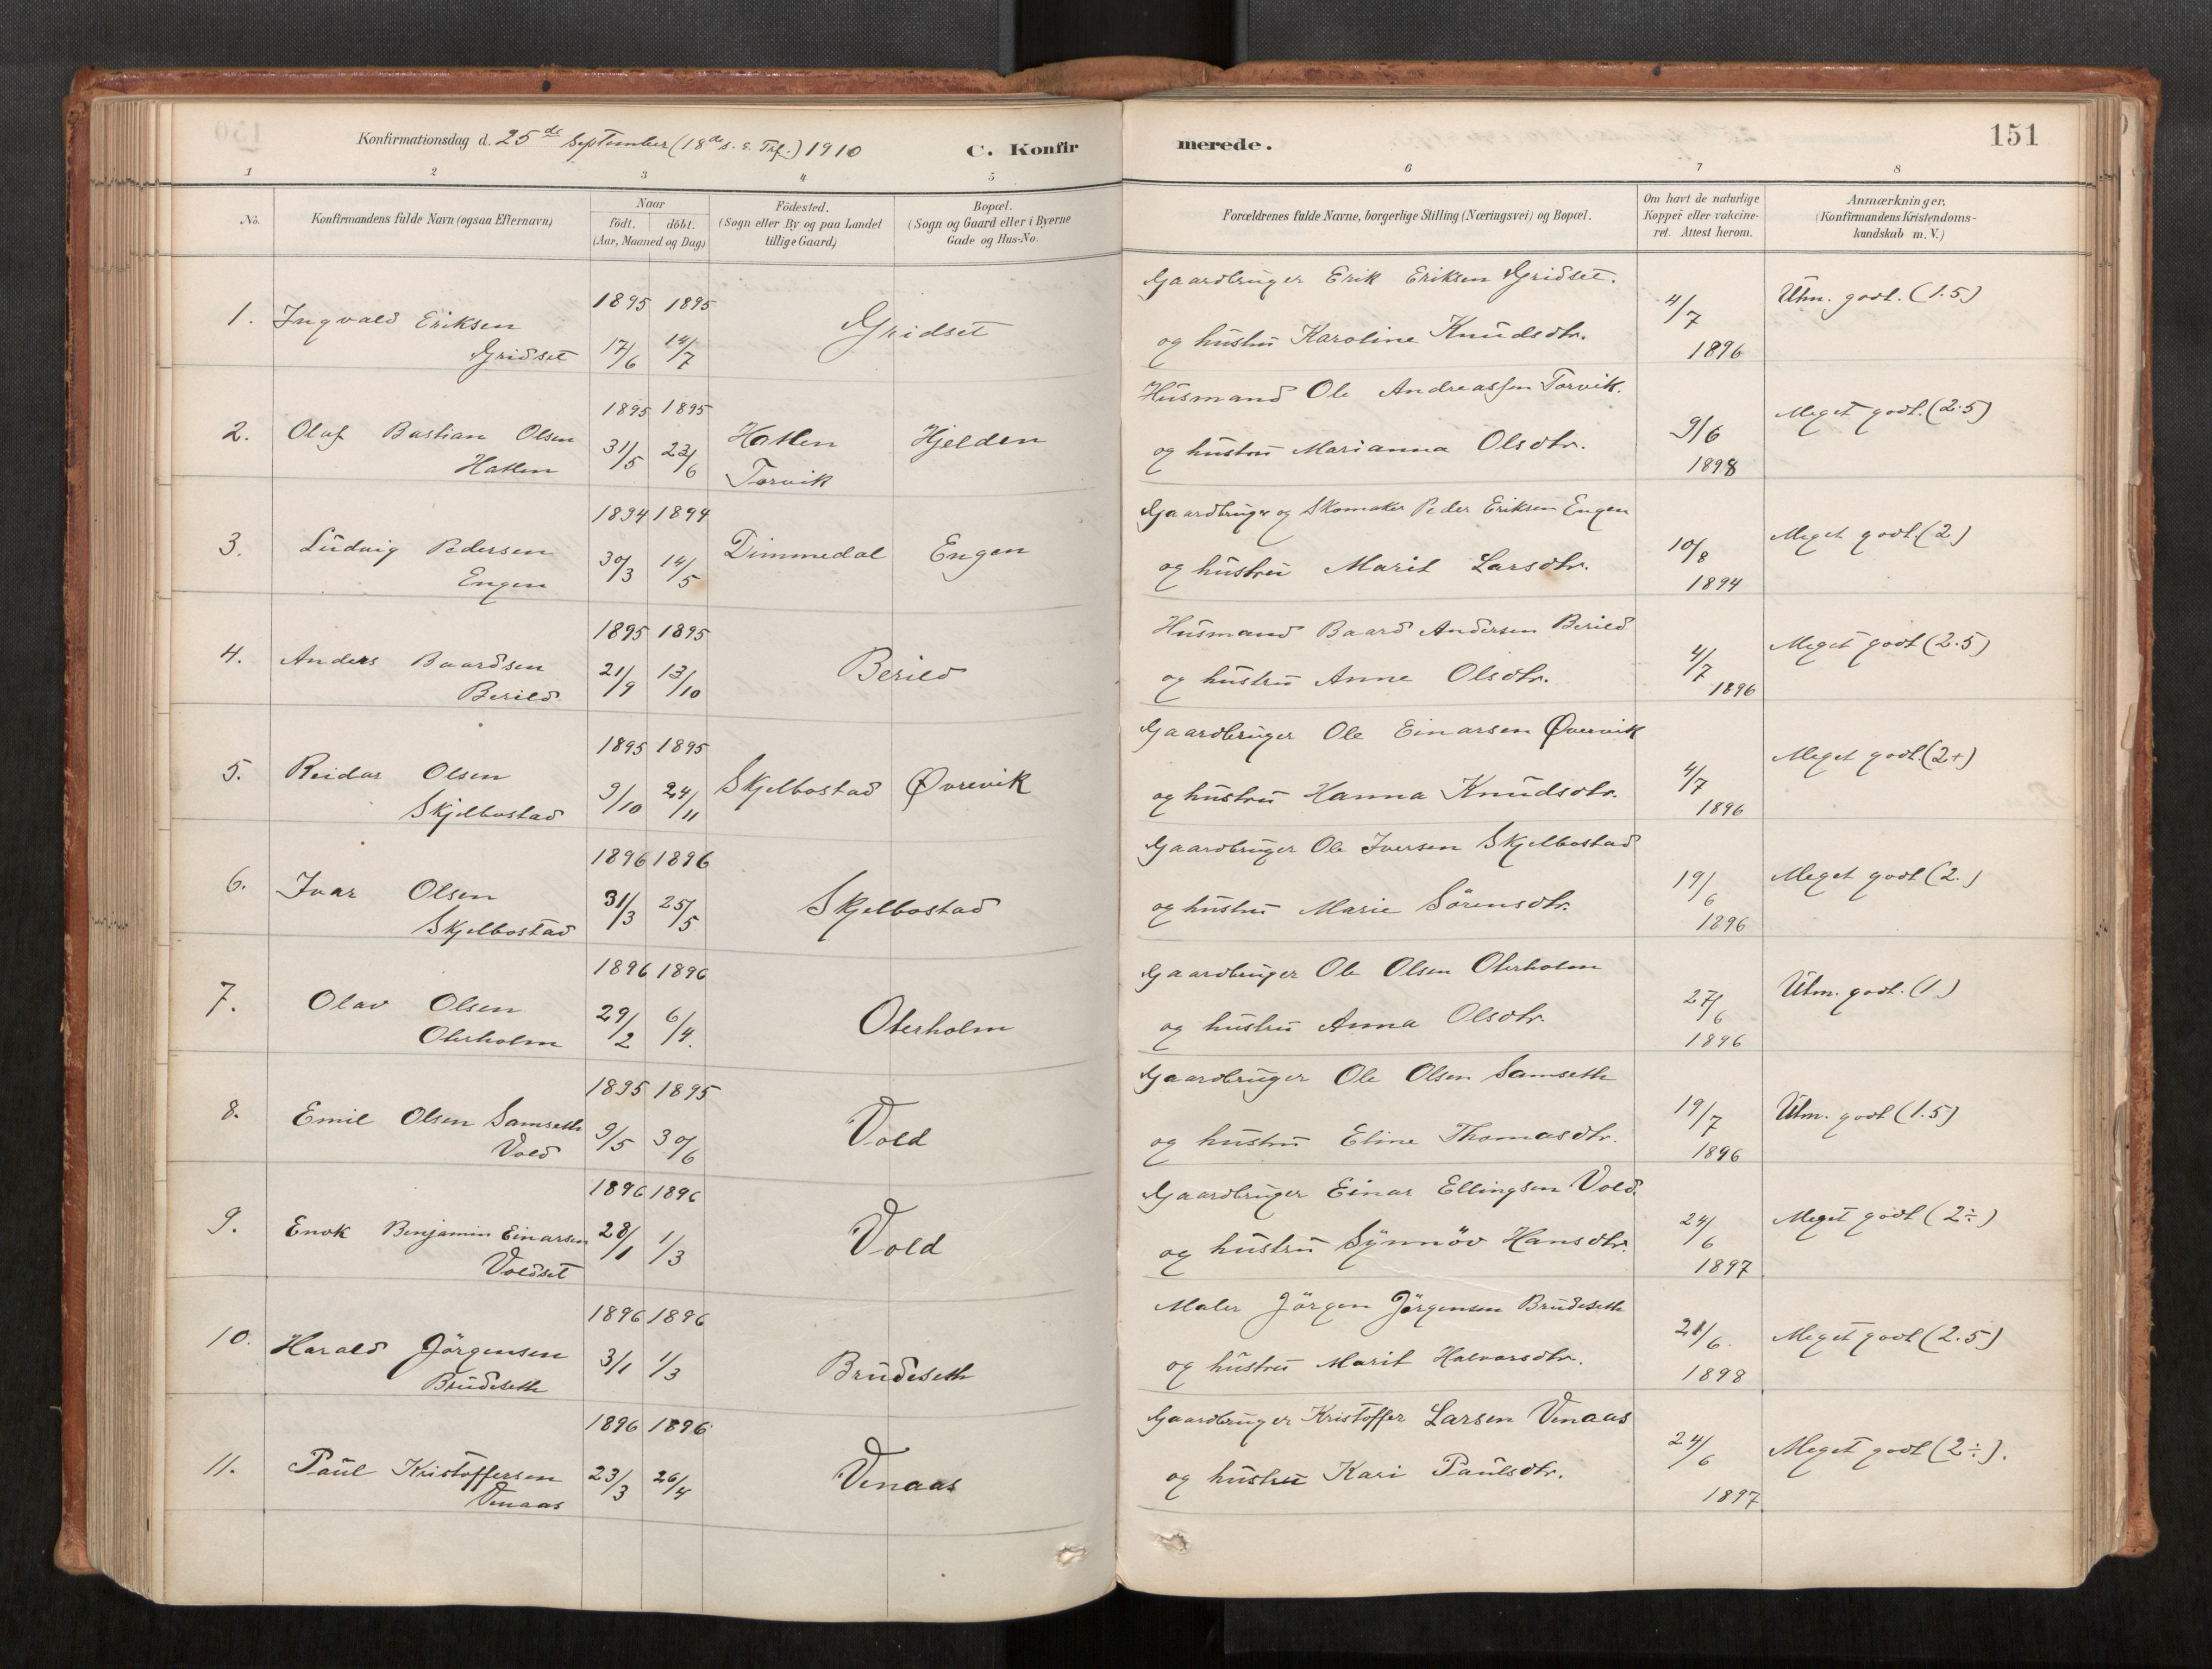 Konfirmationsdag d. 25de September (18de s. e. Tref.) 1910
C. Konfirmerede.
151
1 2 3 4 5 6 7 8
No.
Konfirmandens fulde Navn (ogsaa Efternavn)
Naar
födt. döbt.
(Aar, Maaned og Dag)
Födested.
(Sogn eller By og paa Landet
tillige Gaard)
Bopæl.
(Sogn og Gaard eller i Byerne
Gade og Hus-No.
Forældrenes fulde Navne, borgerlige Stilling (Næringsvei) og Bopæl.
Om havt de naturlige
Kopper eller vakcine-
ret. Attest herom.
Anmærkninger,
(Konfirmandens Kristendoms-
kundskab m. V.)
1. Ingvald Eriksen
Gridset
1895 1895
17/6 14/7
Gridset
Gaardbruger Erik Eriksen Gridset.
og hustru Karoline Knudsdtr.
4/7
1896
Utm. godt. (1.5)
2. Olaf Bastian Olsen
Hatlen
1895 1895
31/5 23/6
Hatlen
Torvik
Hjelden
Husmand Ole Andreassen Torvik.
og hustru Marianna Olsdtr.
9/6
1898
Meget godt. (2.5)
3. Ludvig Pedersen
Engen
1894 1894
30/3 14/5
Dimmedal
Engen
Gaardbruger og Skomaker Peder Eriksen Engen
og hustru Marit Larsdtr.
10/8
1894
Meget godt. (2)
4. Anders Baardsen
Berild
1895 1895
21/9 13/10
Berild
Husmand Baard Andersen Berild
og hustru Anne Olsdtr.
4/7
1896
Meget godt (2.5)
5. Reidar Olsen
Skjelbostad
1895 1895
9/10 24/11
Skjelbostad
Øvrevik
Gaardbruger Ole Einarsen Øvervik
og hustru Hanna Knudsdtr.
4/7
1896
Meget godt. (2+)
6. Ivar Olsen
Skjelbostad
1896 1896
31/3 25/5
Skjelbostad
Gaardbruger Ole Iversen Skjelbostad
og hustru Marie Sörensdtr.
19/6
1896
Meget godt (2.)
7. Olav Olsen
Oterholm
1896 1896
29/2 6/4.
Oterholm
Gaardbruger Ole Olsen Oterholm
og hustru Anna Olsdtr.
27/6
1896
Utm. godt. (1)
8. Emil Olsen Samseth
Vold
1895 1895
9/5 30/6
Vold
Gaardbruger Ole Olsen Samseth
og hustru Eline Thomasdtr.
19/7
1896
Utm. godt (1.5)
9. Enok Benjamin Einarsen
Voldset
1896 1896
28/1 1/3
Vold
Gaardbruger Einar Ellingsen Vold.
og hustru Synnöv Hansdtr.
24/6
1897
Meget godt (2÷)
10. Harald Jörgensen
Brudeseth
1896 1896
3/1 1/3
Brudeseth
Maler Jörgen Jörgensen Brudeseth
og hustru Marit Halvorsdtr.
21/6.
1898
Meget godt (2.5)
11. Paul Kristoffersen
Venaas
1896 1896
23/3 26/4
Venaas
Gaardbruger Kristoffer Larsen Venaas
og hustru Kari Paulsdtr.
24/6
1897
Meget godt (2÷).